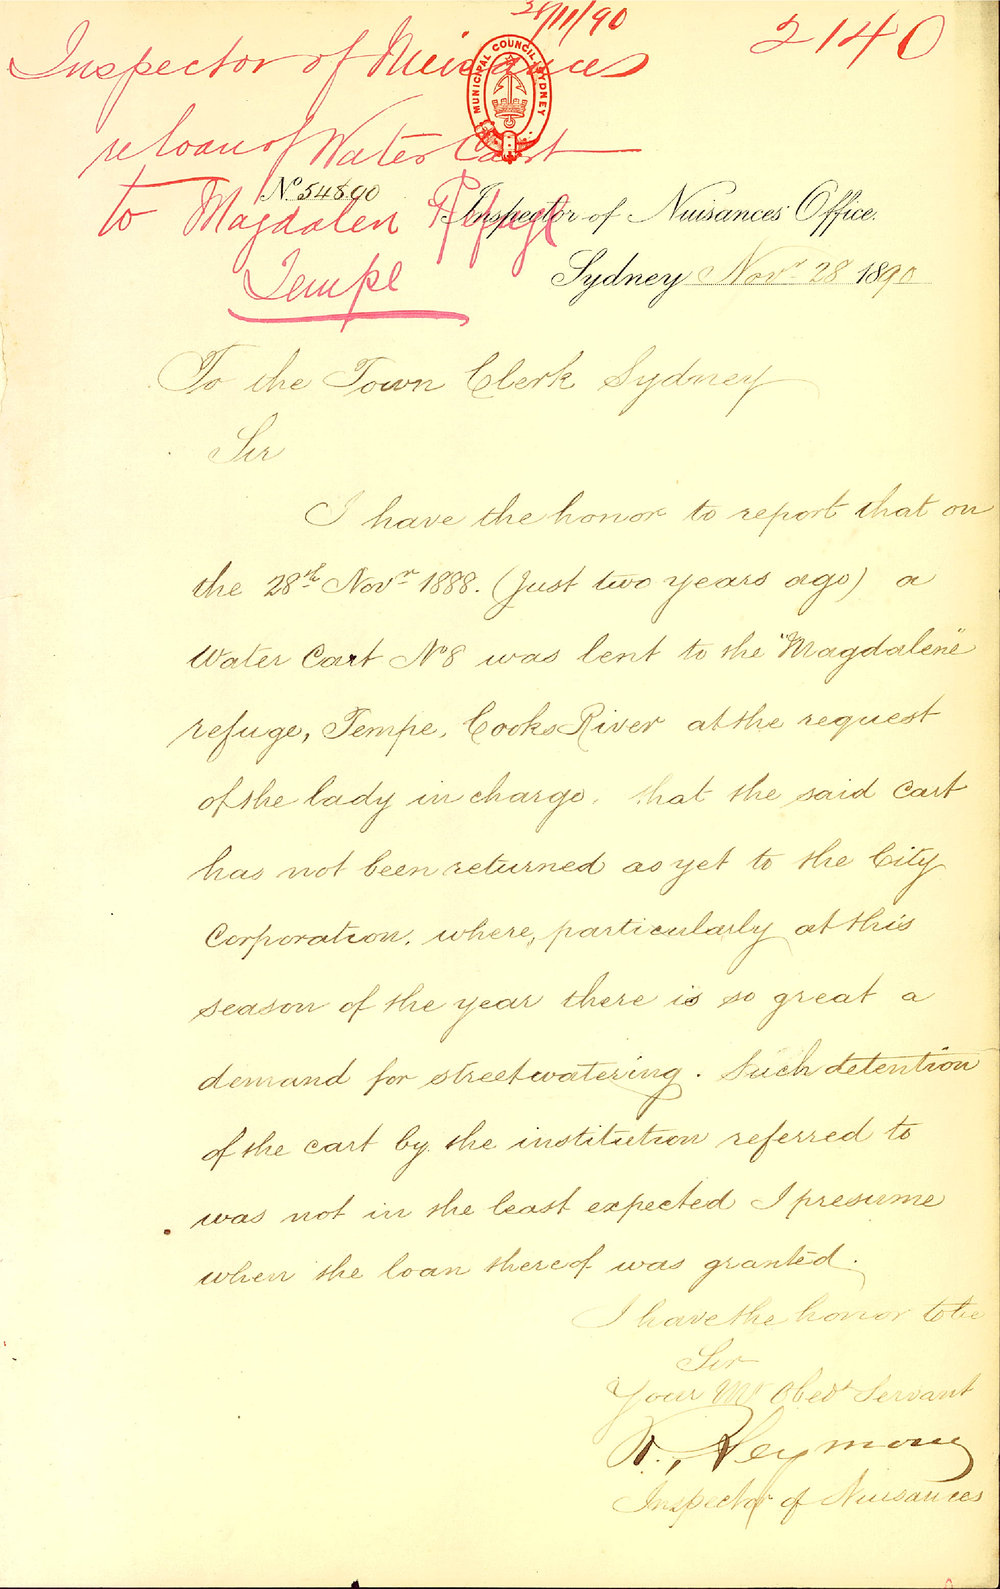 /11/90
2140
Inspector of Nuisances
re loan of Water Cart
to Magdalen Refuge
Tempe
MUNICIPAL COUNCIL SYDNEY
No. 548.90
Inspector of Nuisances Office.
Sydney Novr 28 1890
To the Town Clerk Sydney
Sir
I have the honor to report that on
the 28th Novr 1888. (Just two years ago) a
Water Cart No 8 was lent to the "Magdalene"
refuge, Tempe, Cooks River at the request
of the lady in charge. that the said cart
has not been returned as yet to the City
Corporation. where, particularly at this
season of the year there is so great a
demand for streetwatering. Such detention
of the cart by the institution referred to
was not in the least expected I presume
when the loan thereof was granted.
I have the honor to be
Sir
Your Mt Obedt Servant
R. Seymour
Inspector of Nuisances